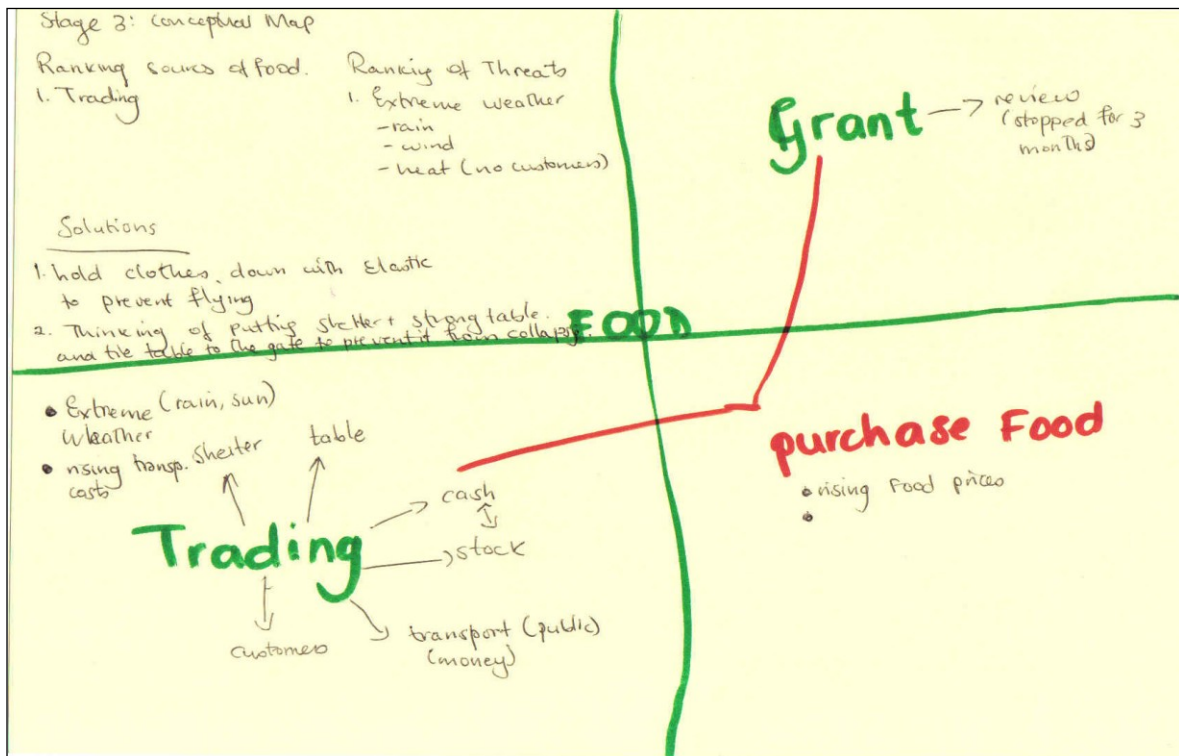 Stage 3: Conceptual Map
Ranking sources of food.
1. Trading
Ranking of Threats
1. Extreme weather
- rain
- wind
- heat (no customers)
Solutions
1. hold clothes down with elastic
to prevent flying
2. Thinking of putting shelter + strong table.
and tie table to the gate to prevent it from collapse.
FOOD
Grant
review
(stopped for 3
months)
• Extreme (rain, sun)
Weather
• rising transp.
costs
shelter
table
cash
stock
Trading
customers
transport (public)
(money)
purchase Food
• rising Food prices
•